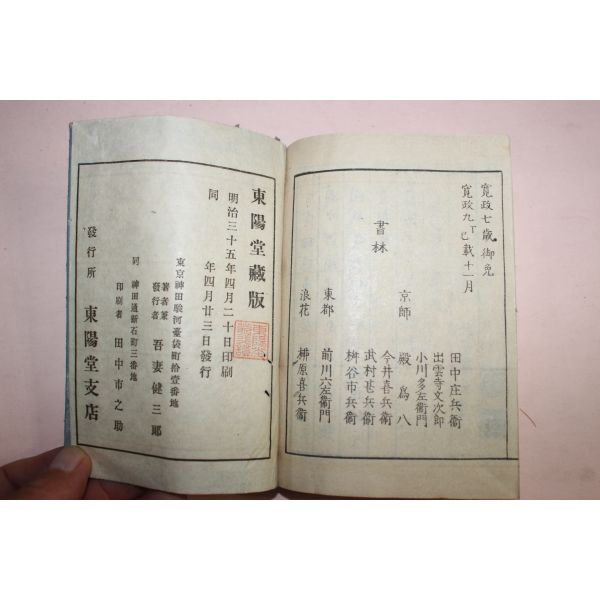 寛政七歳御免
寛政九丁巳載十一月
書林
田中庄兵衛
出雲寺文次郎
小川多左衛門
京師
殿為八
今井喜兵衛
武村甚兵衛
桝谷市兵衛
東都
前川六左衛門
浪花
柳原喜兵衛
東陽堂藏版
明治三十五年四月二十日印刷
同年四月廿三日發行
東京神田駿河臺袋町拾壹番地
著者兼發行者
吾妻健三郎
同神田通新石町三番地
印刷者
田中市之助
發行所
東陽堂支店